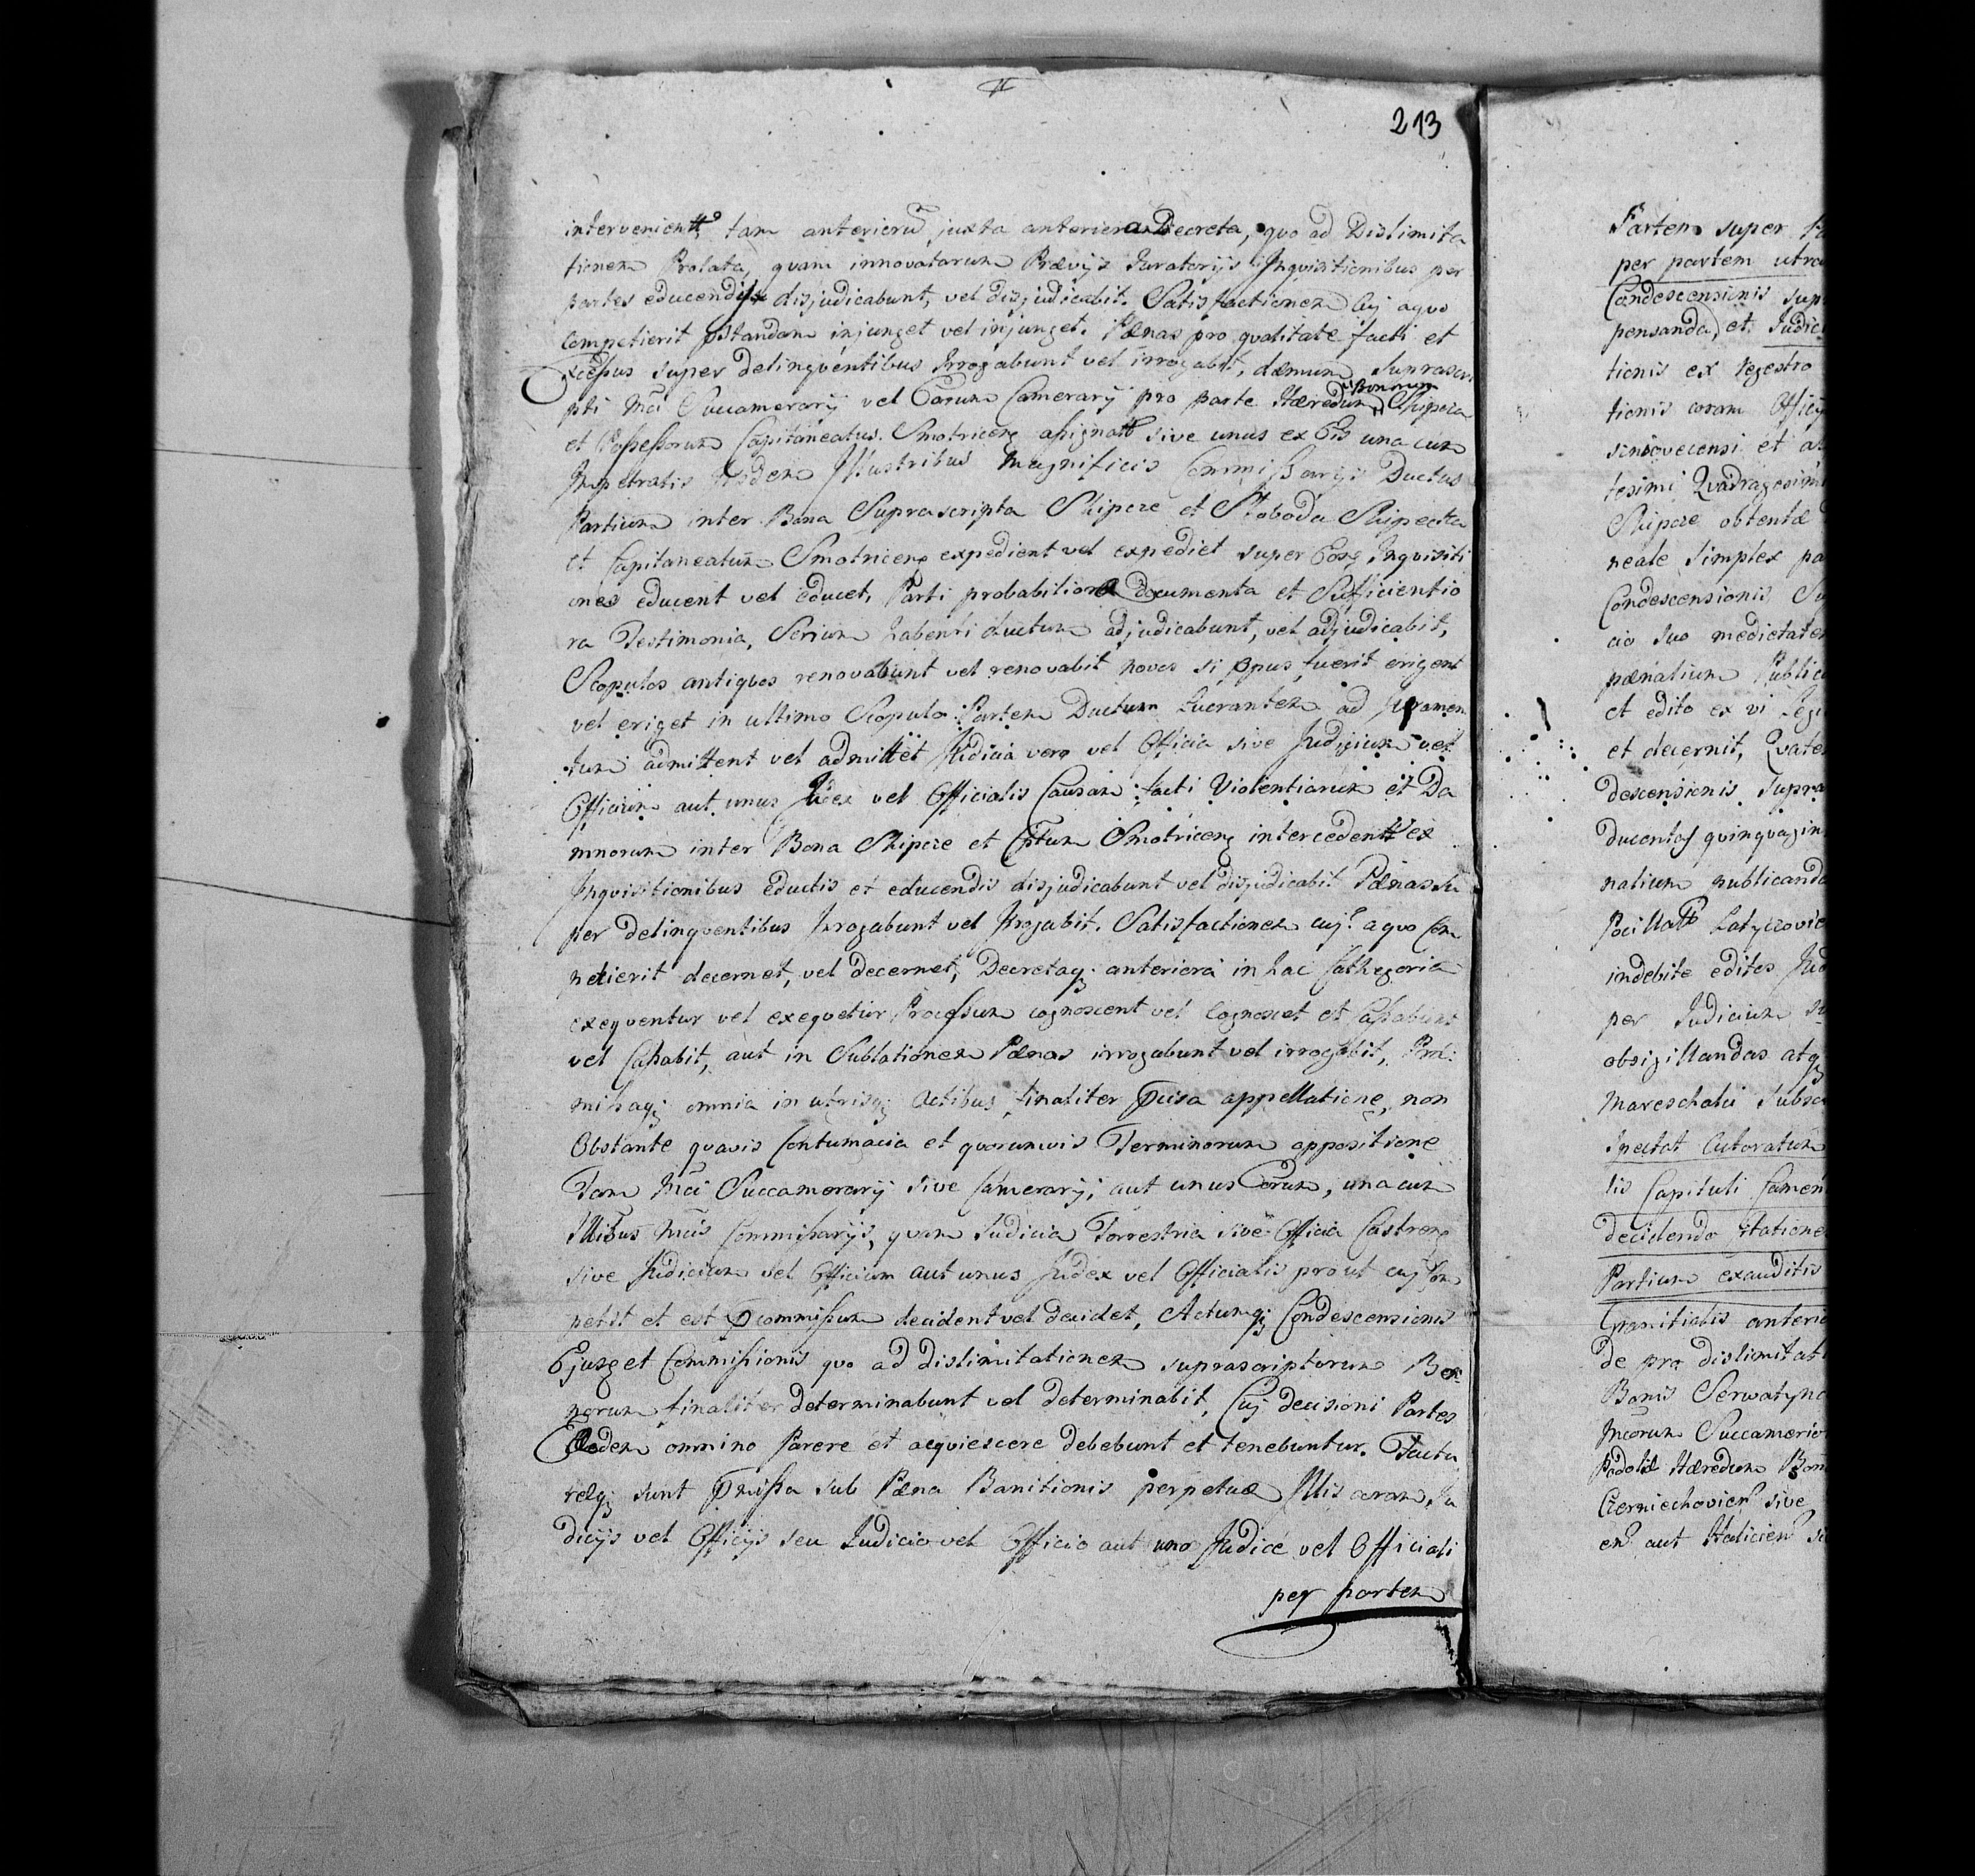 213
intervenientt tam anteriorũ juxta anteriora Decreta, quo ad Dislimita
tionem Prolata, quam innovatarum Prævijs Juratorijs Inquisitionibus per
partes educendis disjudicabunt, vel disjudicabit. Satisfactionem Cuj aquo
Competierit pstandam injunget vel injunget. Pænas pro qualitate facti et
Excessus super delinquentibus Irrogabunt vel irrogabit, dæmum Suprascri
pti Mci Succamerarij vel Eorum Camerarij pro parte Hæredum Bonorum Skipcza
et Possessorum Capitaneatus Smotricen assignatt sive unus ex Eis una cum
Impetratis Illustribus Magnificis Commissarijs Ductus
Partium inter Bona Suprascripta Skipcze et Stoboda Skipecka
et Capitaneatum Smotricen expedient vel expediet super Eos Inquisiti
ones educent vel educet, Parti probabiliora documenta et Sufficientio
ra Testimonia, Scrium habenti ductum adjudicabunt, vel adjudicabit,
Scopulos antiquos renovabunt vel renovabit novos si opus fuerit erigent
vel eriget in ultimo Scopulo Partem Ductum Lucrantem ad Juramen
tum admittent vel admittet Judicia vero vel Officia sive Judicium vel
Officium aut unus Judex vel Officialis Causam facti Violentiarum et Da
mnorum inter Bona Skipcze et Cptum Smotricen intercedentt ex
Inquisitionibus eductis et educendis disjudicabunt vel disjudicabit Pænas su
per delinquentibus Irrogabunt vel Irrogabit. Satisfactionem cuj aquo Com
petierit decernet, vel decernet, Decretaq anteriora in hac Cathegoria
exequentur vel exequetur Processum cognoscent vel Cognoscet et Cassabunt
vel Cassabit, aut in Sublationem Pænas irrogabunt vel irrogabit, Præ
missaq omnia in utrisq Actibus finaliter pcisa appellatione, non
Obstante quavis Contumacia et quorumvis Terminorum appositione
Tam Mci Succamerarij sive Camerarij, aut unus Eorum, una cum
Illibus Mcis Commissarijs, quam Judicia Terrestria sive Officia Castren
sive Judicium vel Officium aut unus Judex vel Officialis prout cuj Com
petit et est pcommissum decident vel decidet, Actumq Condescensionis
Ejus et Commissionis quo ad dislimitationem suprascriptorum Bo
norum finaliter determinabunt vel determinabit, Cuj decisioni Partes
Eædem omnino Parere et acquiescere debebunt et tenebuntur. Facta
relq sunt pmissa sub Pæna Banitionis perpetuæ Illis coram Ju
dicijs vel Officijs seu Judicio vel Officio aut uno Judice vel Officiali
per partem
Partem super
per partem utra
Condescensionis sup
pensanda, et Judic
tionis ex regestro
tionis coram Officij
et
tesimi Quadragesimi
Skipcze obtentæ
neale simplex pa
Condescensionis Su
cio suo medietatem
pænalium Public
et edito ex vi Leg
et decernit, Quate
descensionis supra
ducentas quinquagin
nalium publicand
Latyczovie
indebite edites Jud
per Judicium
obsigillandas atq
Mareschalci Subsc
Spectat Actoratum
tis Capituli Camen
decidendo itatione
Partium exauditis
Granitialis anterio
de pro dislimitat
Bonis Serwatync
Mcorum Succamerio
Podoliæ Hæredum Bon
Czerniechovien sive
en aut Halicien si